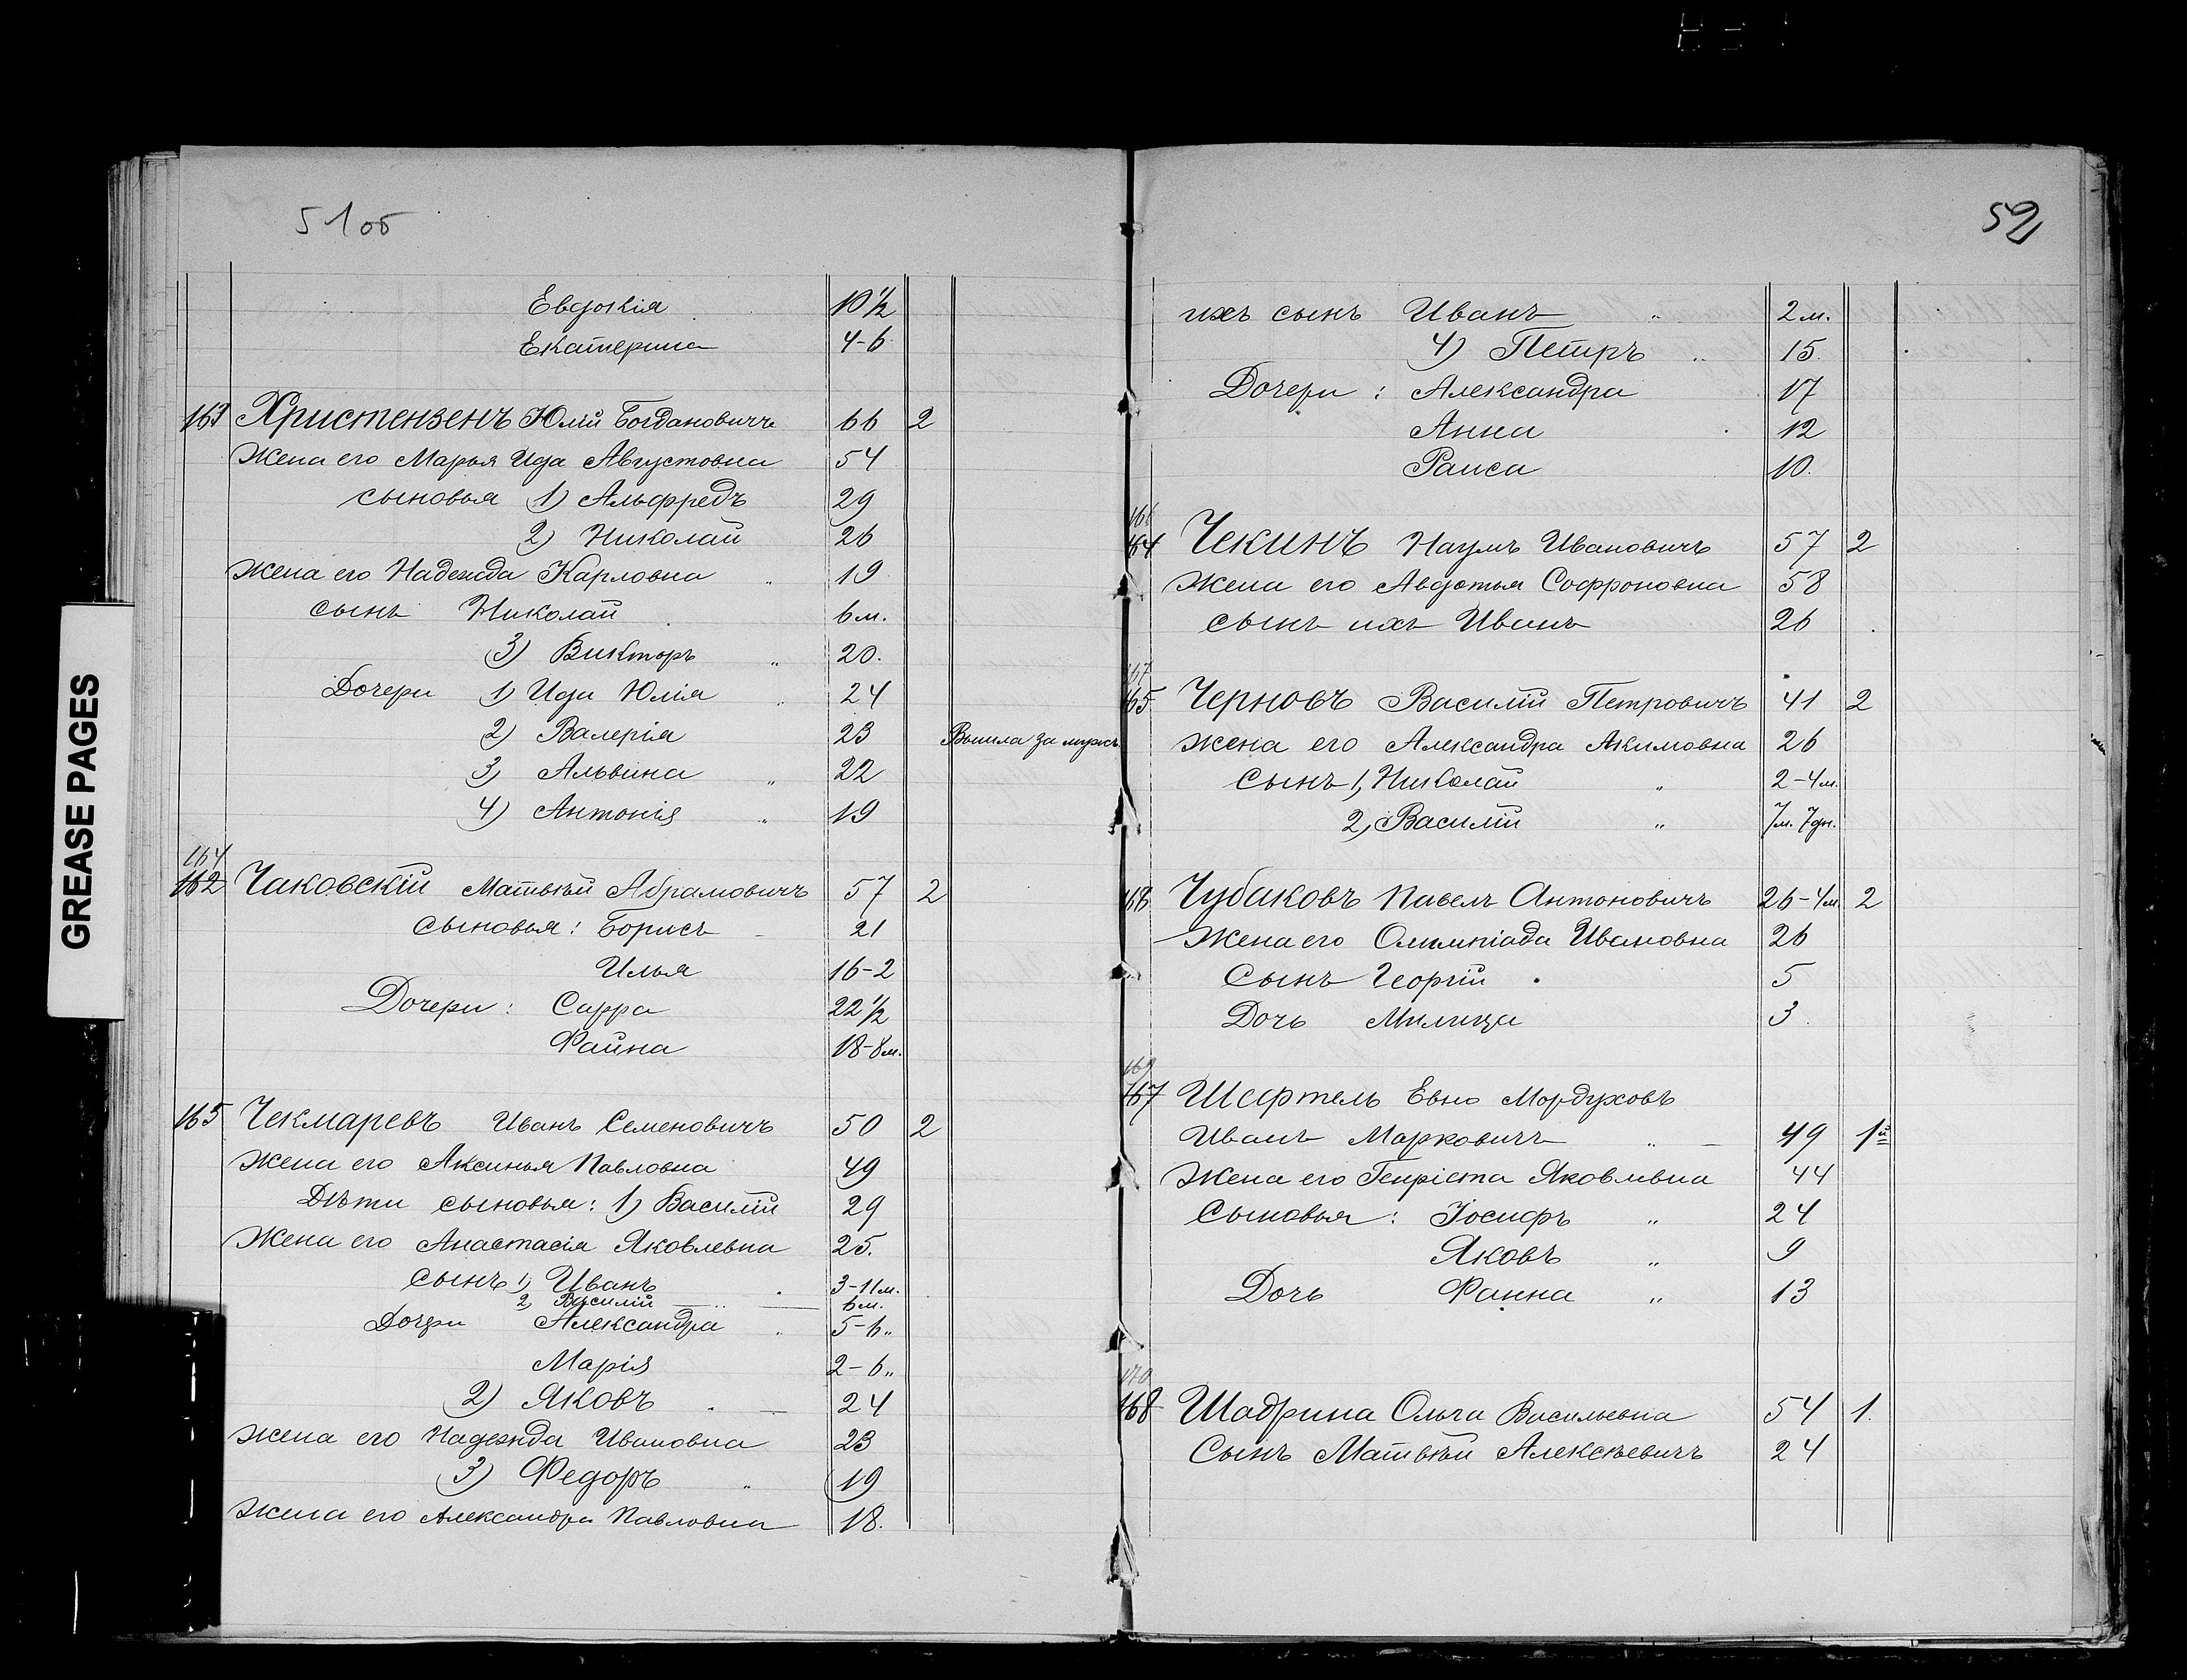 51об
Евдокія 10 1/2
Екатерина 4-6
163 Христензенъ Юлій Богдановичъ 66 2
Жена его Марья Ида Августовна 54
сыновья 1) Альфредъ 29
2) Николай 26
Жена его Надежда Карловна " 19
сынъ Николай 6 м.
3) Викторъ " 20.
Дочери 1) Ида Юлія " 24
2) Валерія 23 Вышла за мужъ
3) Альвина " 22
4) Антонія " 19
164
162 Чаковскій Матвѣй Абрамовичъ 57 2
сыновья: Борисъ - 21
Илья 16-2
Дочери: Сарра 22 1/2
Файна 18-8м.
165 Чекмаревъ Иванъ Семеновичъ 50 2
Жена его Аксинья Павловна 49
Дѣти сыновья: 1) Василій 29
Жена его Анастасія Яковлевна 25.
сынъ 1) Иванъ 3-11м.
2) Василій — " — 6м.
Дочери Александра " 5-6"
Марія 2-6"
2) Яковъ 24
жена его Надежда Ивановна 23
3) Федоръ " 19
жена его Александра Павловна 18.
GREASE PAGES
52
ихъ сынъ Иванъ " 2 м.
4) Петръ " 15.
Дочери: Александра 17
Анна 12
Раиса 10.
166
164 Чекинъ Наумъ Ивановичъ 57 2
Жена его Авдотья Софроновна 58
сынъ ихъ Иванъ 26
167
165 Черновъ Василій Петровичъ 41 2
жена его Александра Акимовна 26
Сынъ 1, Николай " 2-4м.
2, Василій " 7м. 7дн.
168 Чубаковъ Павелъ Антоновичъ 26-4м. 2
Жена его Олимпіада Ивановна 26
Сынъ Георгій 5
Дочь Милица 3
169
167 Шефтель Евно Мордуховъ
Иванъ Марковичъ " — 49 1й
Жена его Генріета Яковлевна 44
Сыновья: Іосифъ " 24
Яковъ " 9
Дочь Фанна " 13
170
168 Шадрина Ольга Васильевна 54 1.
Сынъ Матвѣй Алексѣевичъ 24